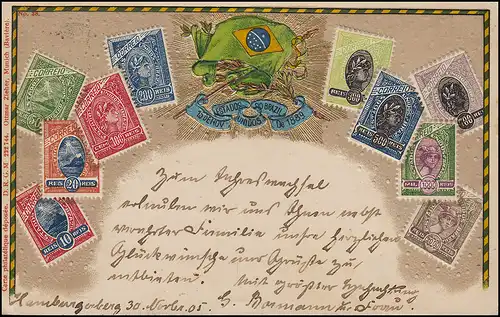 No. 38.
Carte philatélique déposée. D. R. G. M. 222744. Ottmar Zieher, Munich (Bavière).
CORREIO
200 REIS
100
REIS 20 REIS
REIS 10 REIS
ESTADOS DO BRAZIL
DE 1889
300
500 REIS
MIL 1000 REIS
Zum Jahreswechsel
erlauben wir uns Ihnen nebst
verehrter Familie unsere herzlichen
Glückwünsche und Grüße zu
entbieten. Mit größter Hochachtung
Hamburgerberg 30. Novbr. 05 G. Baumann u. Frau.